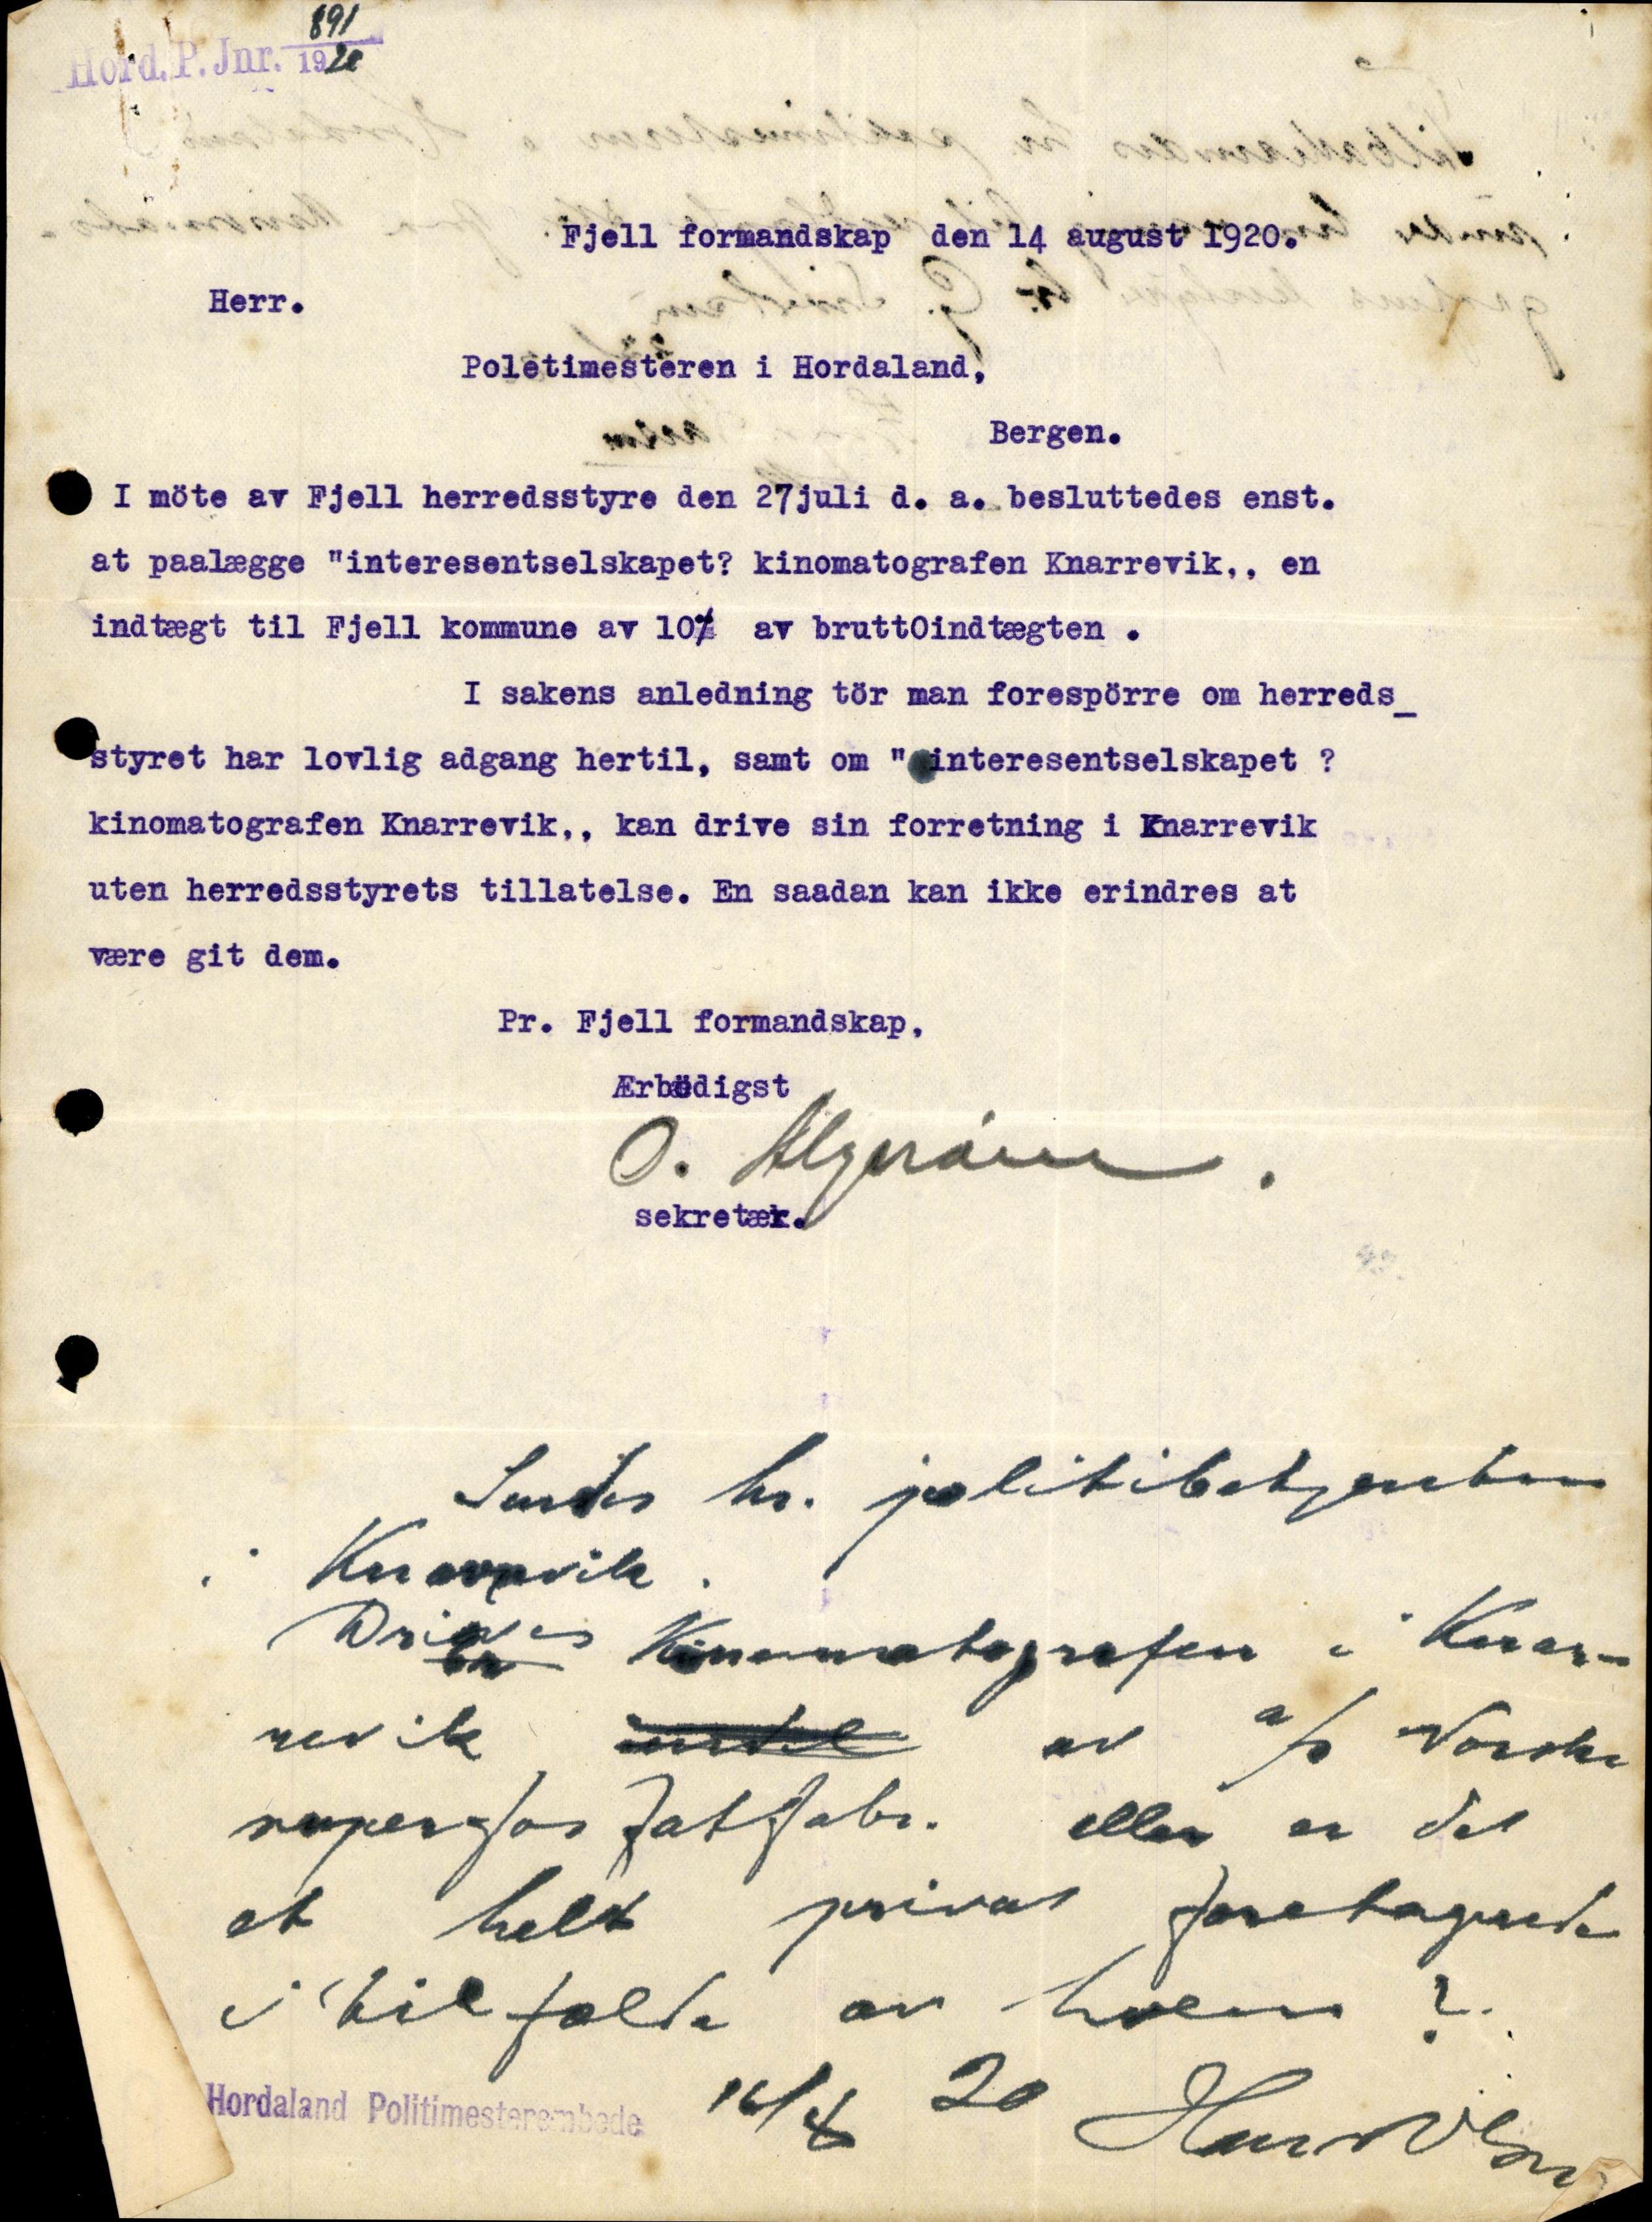 Hord. P. Jnr. 891/1920
Fjell formandskap den 14 august 1920.
Herr.
Poletimesteren i Hordaland,
Bergen.
I möte av Fjell herredsstyre den 27juli d. a. besluttedes enst.
at paalægge "interesentselskapet? kinomatografen Knarrevik,, en
indtægt til Fjell kommune av 10% av bruttOindtægten .
I sakens anledning tör man forespörre om herreds_
styret har lovlig adgang hertil, samt om " interesentselskapet ?
kinomatografen Knarrevik,, kan drive sin forretning i Knarrevik
uten herredsstyrets tillatelse. En saadan kan ikke erindres at
være git dem.
Pr. Fjell formandskap,
Ærbödigst
O. Algeröin.
sekretær.
Sendes hr. politibetjenten
i Knarrevik.
Drives Kinematografen i Knar-
revik av a/s Norske
superfosfatfabr. eller er det
et helt privat foretagende
i tilfælde av hvem ?
Hordaland Politimesterembede 16/8 20